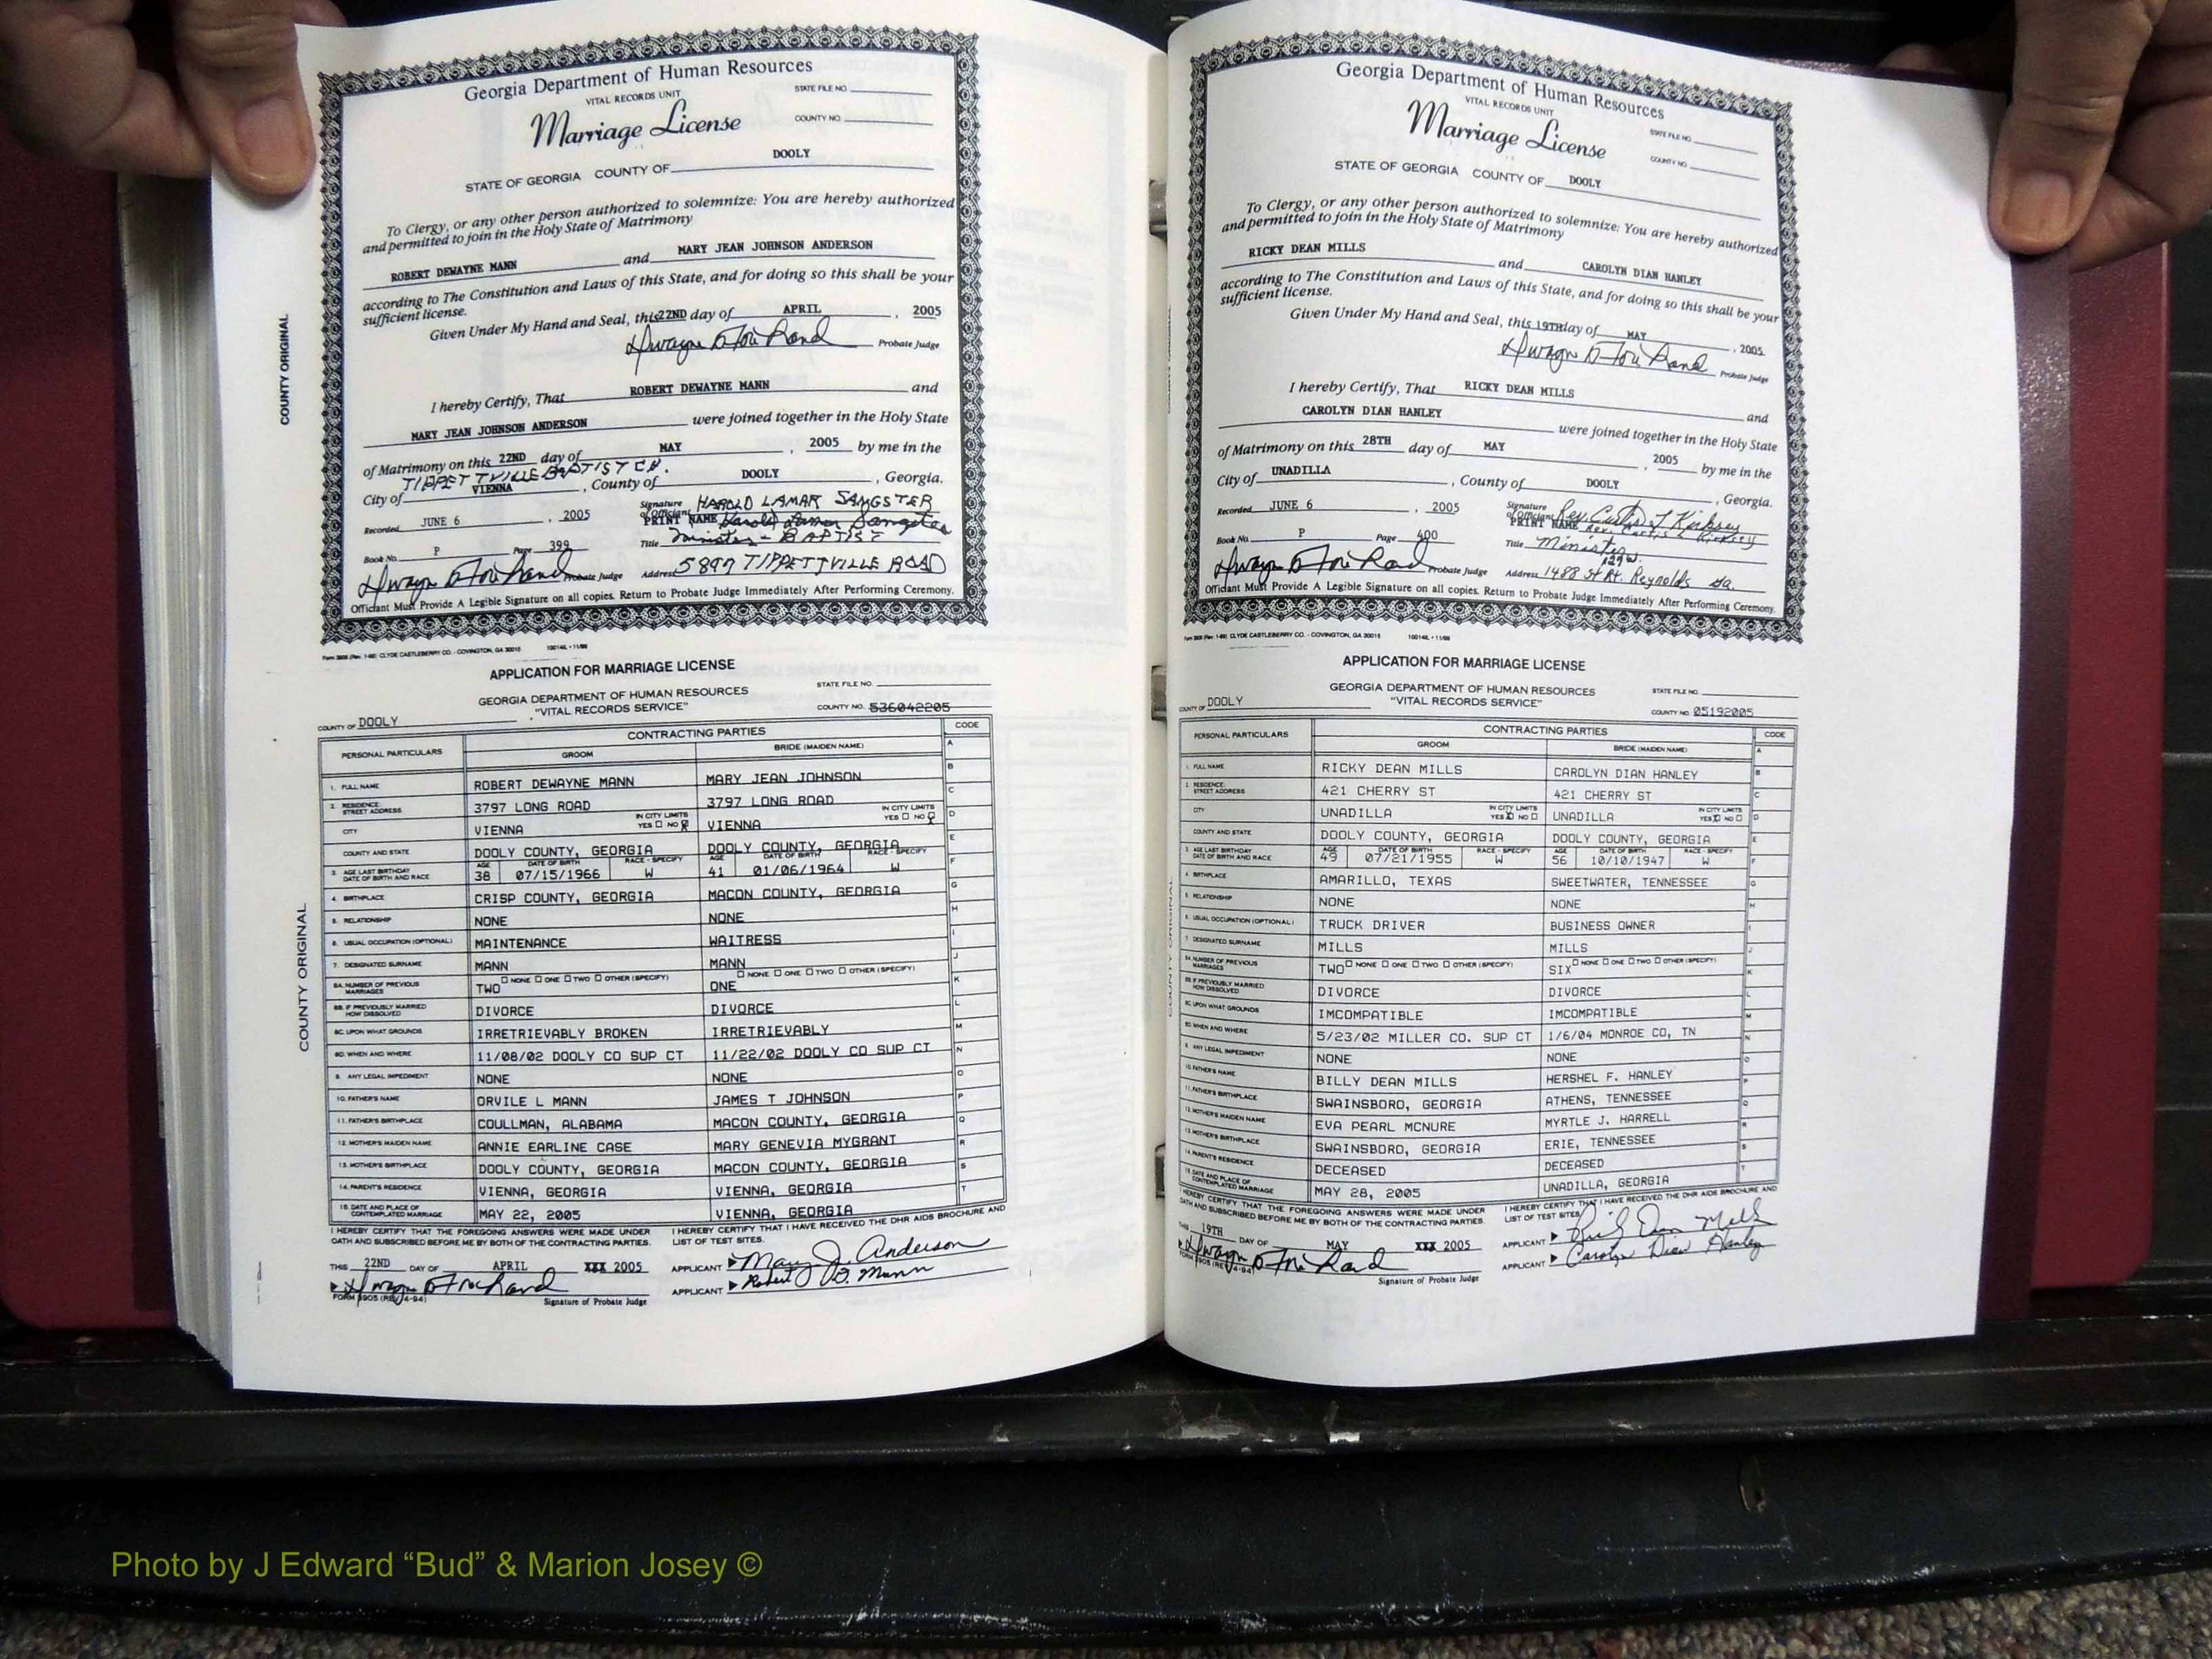 Georgia Department of Human Resources
VITAL RECORDS UNIT
STATE FILE NO.
Marriage License
COUNTY NO.
STATE OF GEORGIA COUNTY OF DOOLY
To Clergy, or any other person authorized to solemnize: You are hereby authorized
and permitted to join in the Holy State of Matrimony
ROBERT DEWAYNE MANN and MARY JEAN JOHNSON ANDERSON
according to The Constitution and Laws of this State, and for doing so this shall be your
sufficient license.
Given Under My Hand and Seal, this 22ND day of APRIL, 2005
Probate Judge
I hereby Certify, That ROBERT DEWAYNE MANN and
MARY JEAN JOHNSON ANDERSON were joined together in the Holy State
of Matrimony on this 22ND day of MAY, 2005 by me in the
TIPPETTVILLE BAPTIST CH.
City of VIENNA, County of DOOLY, Georgia.
Recorded JUNE 6, 2005 Signature of Officiant HAROLD LAMAR SANGSTER
PRINT NAME Harold Lamar Sangster
Book No. P Page 399 Title Minister - BAPTIST
Probate Judge Address 5897 TIPPETTVILLE ROAD
Officiant Must Provide A Legible Signature on all copies. Return to Probate Judge Immediately After Performing Ceremony.
COUNTY ORIGINAL
Form 3908 (Rev. 1-89) CLYDE CASTLEBERRY CO. - COVINGTON, GA 30015
APPLICATION FOR MARRIAGE LICENSE
GEORGIA DEPARTMENT OF HUMAN RESOURCES
STATE FILE NO.
"VITAL RECORDS SERVICE"
COUNTY NO. 536042205
COUNTY OF DOOLY
PERSONAL PARTICULARS CONTRACTING PARTIES CODE
GROOM BRIDE (MAIDEN NAME) A
1. FULL NAME ROBERT DEWAYNE MANN MARY JEAN JOHNSON B
2. RESIDENCE: STREET ADDRESS 3797 LONG ROAD 3797 LONG ROAD C
CITY VIENNA IN CITY LIMITS YES NO VIENNA IN CITY LIMITS YES NO D
COUNTY AND STATE DOOLY COUNTY, GEORGIA DOOLY COUNTY, GEORGIA E
3. AGE LAST BIRTHDAY DATE OF BIRTH AND RACE AGE 38 DATE OF BIRTH 07/15/1966 RACE - SPECIFY W AGE 41 DATE OF BIRTH 01/06/1964 RACE - SPECIFY W F
4. BIRTHPLACE CRISP COUNTY, GEORGIA MACON COUNTY, GEORGIA G
5. RELATIONSHIP NONE NONE H
6. USUAL OCCUPATION (OPTIONAL) MAINTENANCE WAITRESS I
7. DESIGNATED SURNAME MANN MANN J
8A. NUMBER OF PREVIOUS MARRIAGES TWO NONE ONE TWO OTHER (SPECIFY) ONE NONE ONE TWO OTHER (SPECIFY) K
8B. IF PREVIOUSLY MARRIED HOW DISSOLVED DIVORCE DIVORCE L
8C. UPON WHAT GROUNDS IRRETRIEVABLY BROKEN IRRETRIEVABLY M
8D. WHEN AND WHERE 11/08/02 DOOLY CO SUP CT 11/22/02 DOOLY CO SUP CT N
9. ANY LEGAL IMPEDIMENT NONE NONE O
10. FATHER'S NAME ORVILE L MANN JAMES T JOHNSON P
11. FATHER'S BIRTHPLACE COULLMAN, ALABAMA MACON COUNTY, GEORGIA Q
12. MOTHER'S MAIDEN NAME ANNIE EARLINE CASE MARY GENEVIA MYGRANT R
13. MOTHER'S BIRTHPLACE DOOLY COUNTY, GEORGIA MACON COUNTY, GEORGIA S
14. PARENT'S RESIDENCE VIENNA, GEORGIA VIENNA, GEORGIA T
15. DATE AND PLACE OF CONTEMPLATED MARRIAGE MAY 22, 2005 VIENNA, GEORGIA
I HEREBY CERTIFY THAT THE FOREGOING ANSWERS WERE MADE UNDER
OATH AND SUBSCRIBED BEFORE ME BY BOTH OF THE CONTRACTING PARTIES.
I HEREBY CERTIFY THAT I HAVE RECEIVED THE DHR AIDS BROCHURE AND
LIST OF TEST SITES.
THIS 22ND DAY OF APRIL XXX 2005
APPLICANT Mary J. Anderson
APPLICANT Robert D. Mann
FORM 3905 (REV. 4-94) Signature of Probate Judge
COUNTY ORIGINAL
Georgia Department of Human Resources
VITAL RECORDS UNIT
STATE FILE NO.
Marriage License
COUNTY NO.
STATE OF GEORGIA COUNTY OF DOOLY
To Clergy, or any other person authorized to solemnize: You are hereby authorized
and permitted to join in the Holy State of Matrimony
RICKY DEAN MILLS and CAROLYN DIAN HANLEY
according to The Constitution and Laws of this State, and for doing so this shall be your
sufficient license.
Given Under My Hand and Seal, this 19TH day of MAY, 2005
Probate Judge
I hereby Certify, That RICKY DEAN MILLS and
CAROLYN DIAN HANLEY were joined together in the Holy State
of Matrimony on this 28TH day of MAY, 2005 by me in the
City of UNADILLA, County of DOOLY, Georgia.
Recorded JUNE 6, 2005 Signature of Officiant Rev. Curtis L Kirksey
PRINT NAME Rev. Curtis L Kirksey
Book No. P Page 400 Title Minister
127 W.
Probate Judge Address 1488 St Rt. Reynolds Ga.
Officiant Must Provide A Legible Signature on all copies. Return to Probate Judge Immediately After Performing Ceremony.
Form 3908 (Rev. 1-89) CLYDE CASTLEBERRY CO. - COVINGTON, GA 30015
APPLICATION FOR MARRIAGE LICENSE
GEORGIA DEPARTMENT OF HUMAN RESOURCES
STATE FILE NO.
"VITAL RECORDS SERVICE"
COUNTY NO. 05192005
COUNTY OF DOOLY
PERSONAL PARTICULARS CONTRACTING PARTIES CODE
GROOM BRIDE (MAIDEN NAME) A
1. FULL NAME RICKY DEAN MILLS CAROLYN DIAN HANLEY B
2. RESIDENCE: STREET ADDRESS 421 CHERRY ST 421 CHERRY ST C
CITY UNADILLA IN CITY LIMITS YES NO UNADILLA IN CITY LIMITS YES NO D
COUNTY AND STATE DOOLY COUNTY, GEORGIA DOOLY COUNTY, GEORGIA E
3. AGE LAST BIRTHDAY DATE OF BIRTH AND RACE AGE 49 DATE OF BIRTH 07/21/1955 RACE - SPECIFY W AGE 56 DATE OF BIRTH 10/10/1947 RACE - SPECIFY W F
4. BIRTHPLACE AMARILLO, TEXAS SWEETWATER, TENNESSEE G
5. RELATIONSHIP NONE NONE H
6. USUAL OCCUPATION (OPTIONAL) TRUCK DRIVER BUSINESS OWNER I
7. DESIGNATED SURNAME MILLS MILLS J
8A. NUMBER OF PREVIOUS MARRIAGES TWO NONE ONE TWO OTHER (SPECIFY) SIX NONE ONE TWO OTHER (SPECIFY) K
8B. IF PREVIOUSLY MARRIED HOW DISSOLVED DIVORCE DIVORCE L
8C. UPON WHAT GROUNDS IMCOMPATIBLE IMCOMPATIBLE M
8D. WHEN AND WHERE 5/23/02 MILLER CO. SUP CT 1/6/04 MONROE CO, TN N
9. ANY LEGAL IMPEDIMENT NONE NONE O
10. FATHER'S NAME BILLY DEAN MILLS HERSHEL F. HANLEY P
11. FATHER'S BIRTHPLACE SWAINSBORO, GEORGIA ATHENS, TENNESSEE Q
12. MOTHER'S MAIDEN NAME EVA PEARL MCNURE MYRTLE J. HARRELL R
13. MOTHER'S BIRTHPLACE SWAINSBORO, GEORGIA ERIE, TENNESSEE S
14. PARENT'S RESIDENCE DECEASED DECEASED T
15. DATE AND PLACE OF CONTEMPLATED MARRIAGE MAY 28, 2005 UNADILLA, GEORGIA
I HEREBY CERTIFY THAT THE FOREGOING ANSWERS WERE MADE UNDER
OATH AND SUBSCRIBED BEFORE ME BY BOTH OF THE CONTRACTING PARTIES.
I HEREBY CERTIFY THAT I HAVE RECEIVED THE DHR AIDS BROCHURE AND
LIST OF TEST SITES.
THIS 19TH DAY OF MAY XXX 2005
APPLICANT
APPLICANT Carolyn Dian Hanley
FORM 3905 (REV. 4-94) Signature of Probate Judge
Photo by J Edward “Bud” & Marion Josey ©